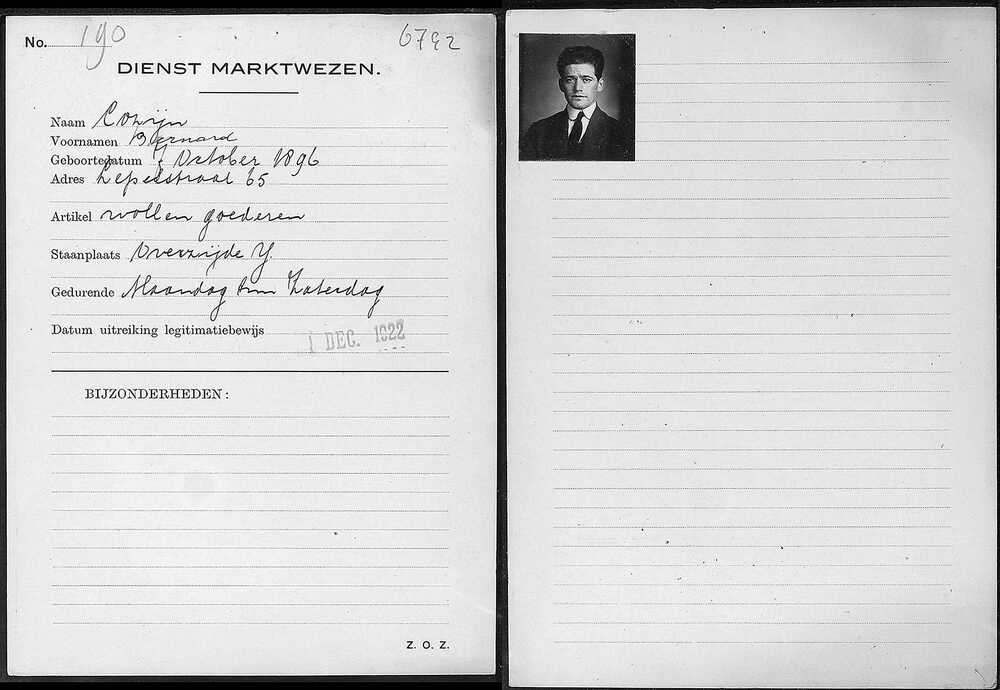 No. 190 6792
DIENST MARKTWEZEN.
Naam Cozijn
Voornamen Bernard
Geboortedatum 7 October 1896
Adres Lepelstraat 65
Artikel wollen goederen
Staanplaats Overzijde Y.
Gedurende Maandag t/m Zaterdag
Datum uitreiking legitimatiebewijs 1 DEC. 1922
BIJZONDERHEDEN:
Z. O. Z.